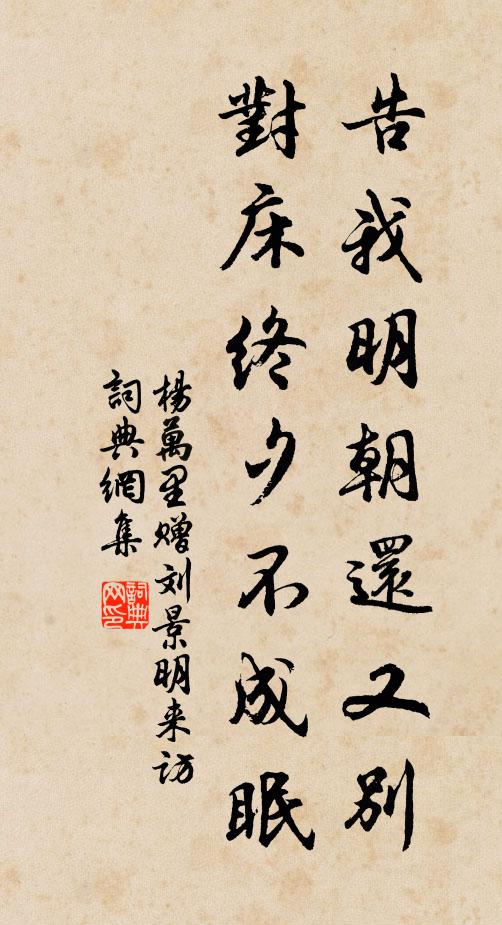 告我明朝還又别
對床终夕不成眠
楊萬里赠刘景明来访
詞典網集
詞典
网印